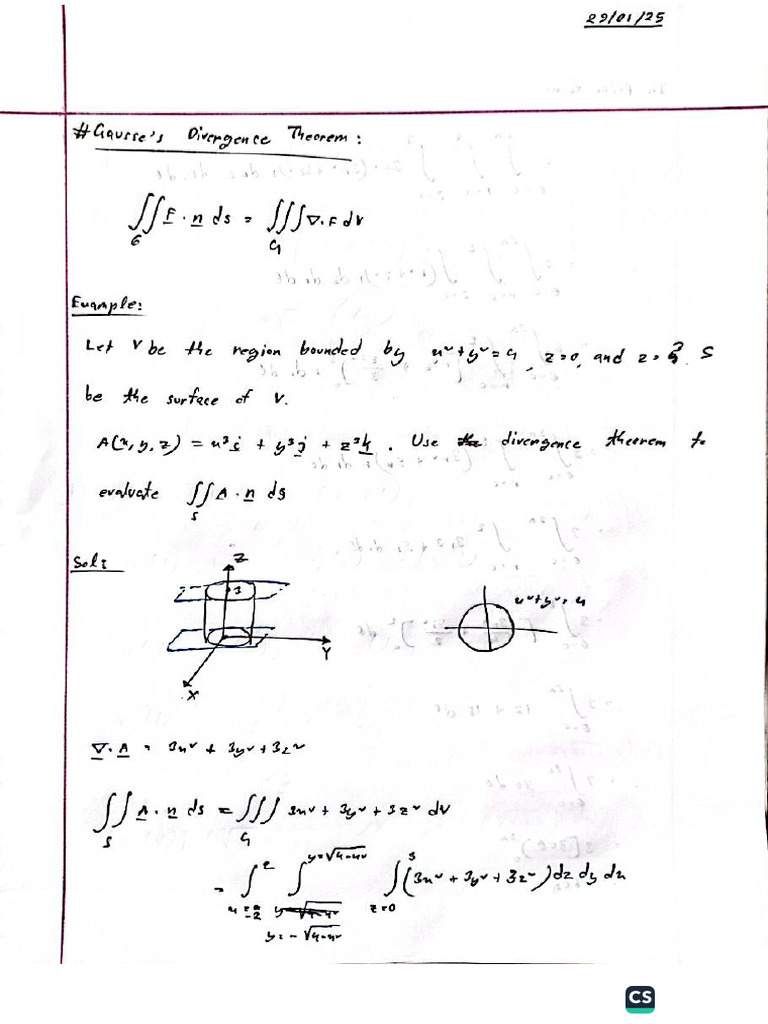 29/01/25
# Gausse's Divergence Theorem:
∬_G F · n ds = ∭_G ∇ · F dV
Example:
Let V be the region bounded by x² + y² = 4, z = 0, and z = 3. S
be the surface of V.
A(x, y, z) = x³ i + y³ j + z³ k . Use the divergence theorem to
evaluate ∬_S A · n ds
Sol:
Z
3
Y
X
x² + y² = 4
∇ · A = 3x² + 3y² + 3z²
∬_S A · n ds = ∭_G 3x² + 3y² + 3z² dV
= ∫_{x=-2}^{2} ∫_{y=-√(4-x²)}^{y=√(4-x²)} ∫_{z=0}^{3} (3x² + 3y² + 3z²) dz dy dx
CS